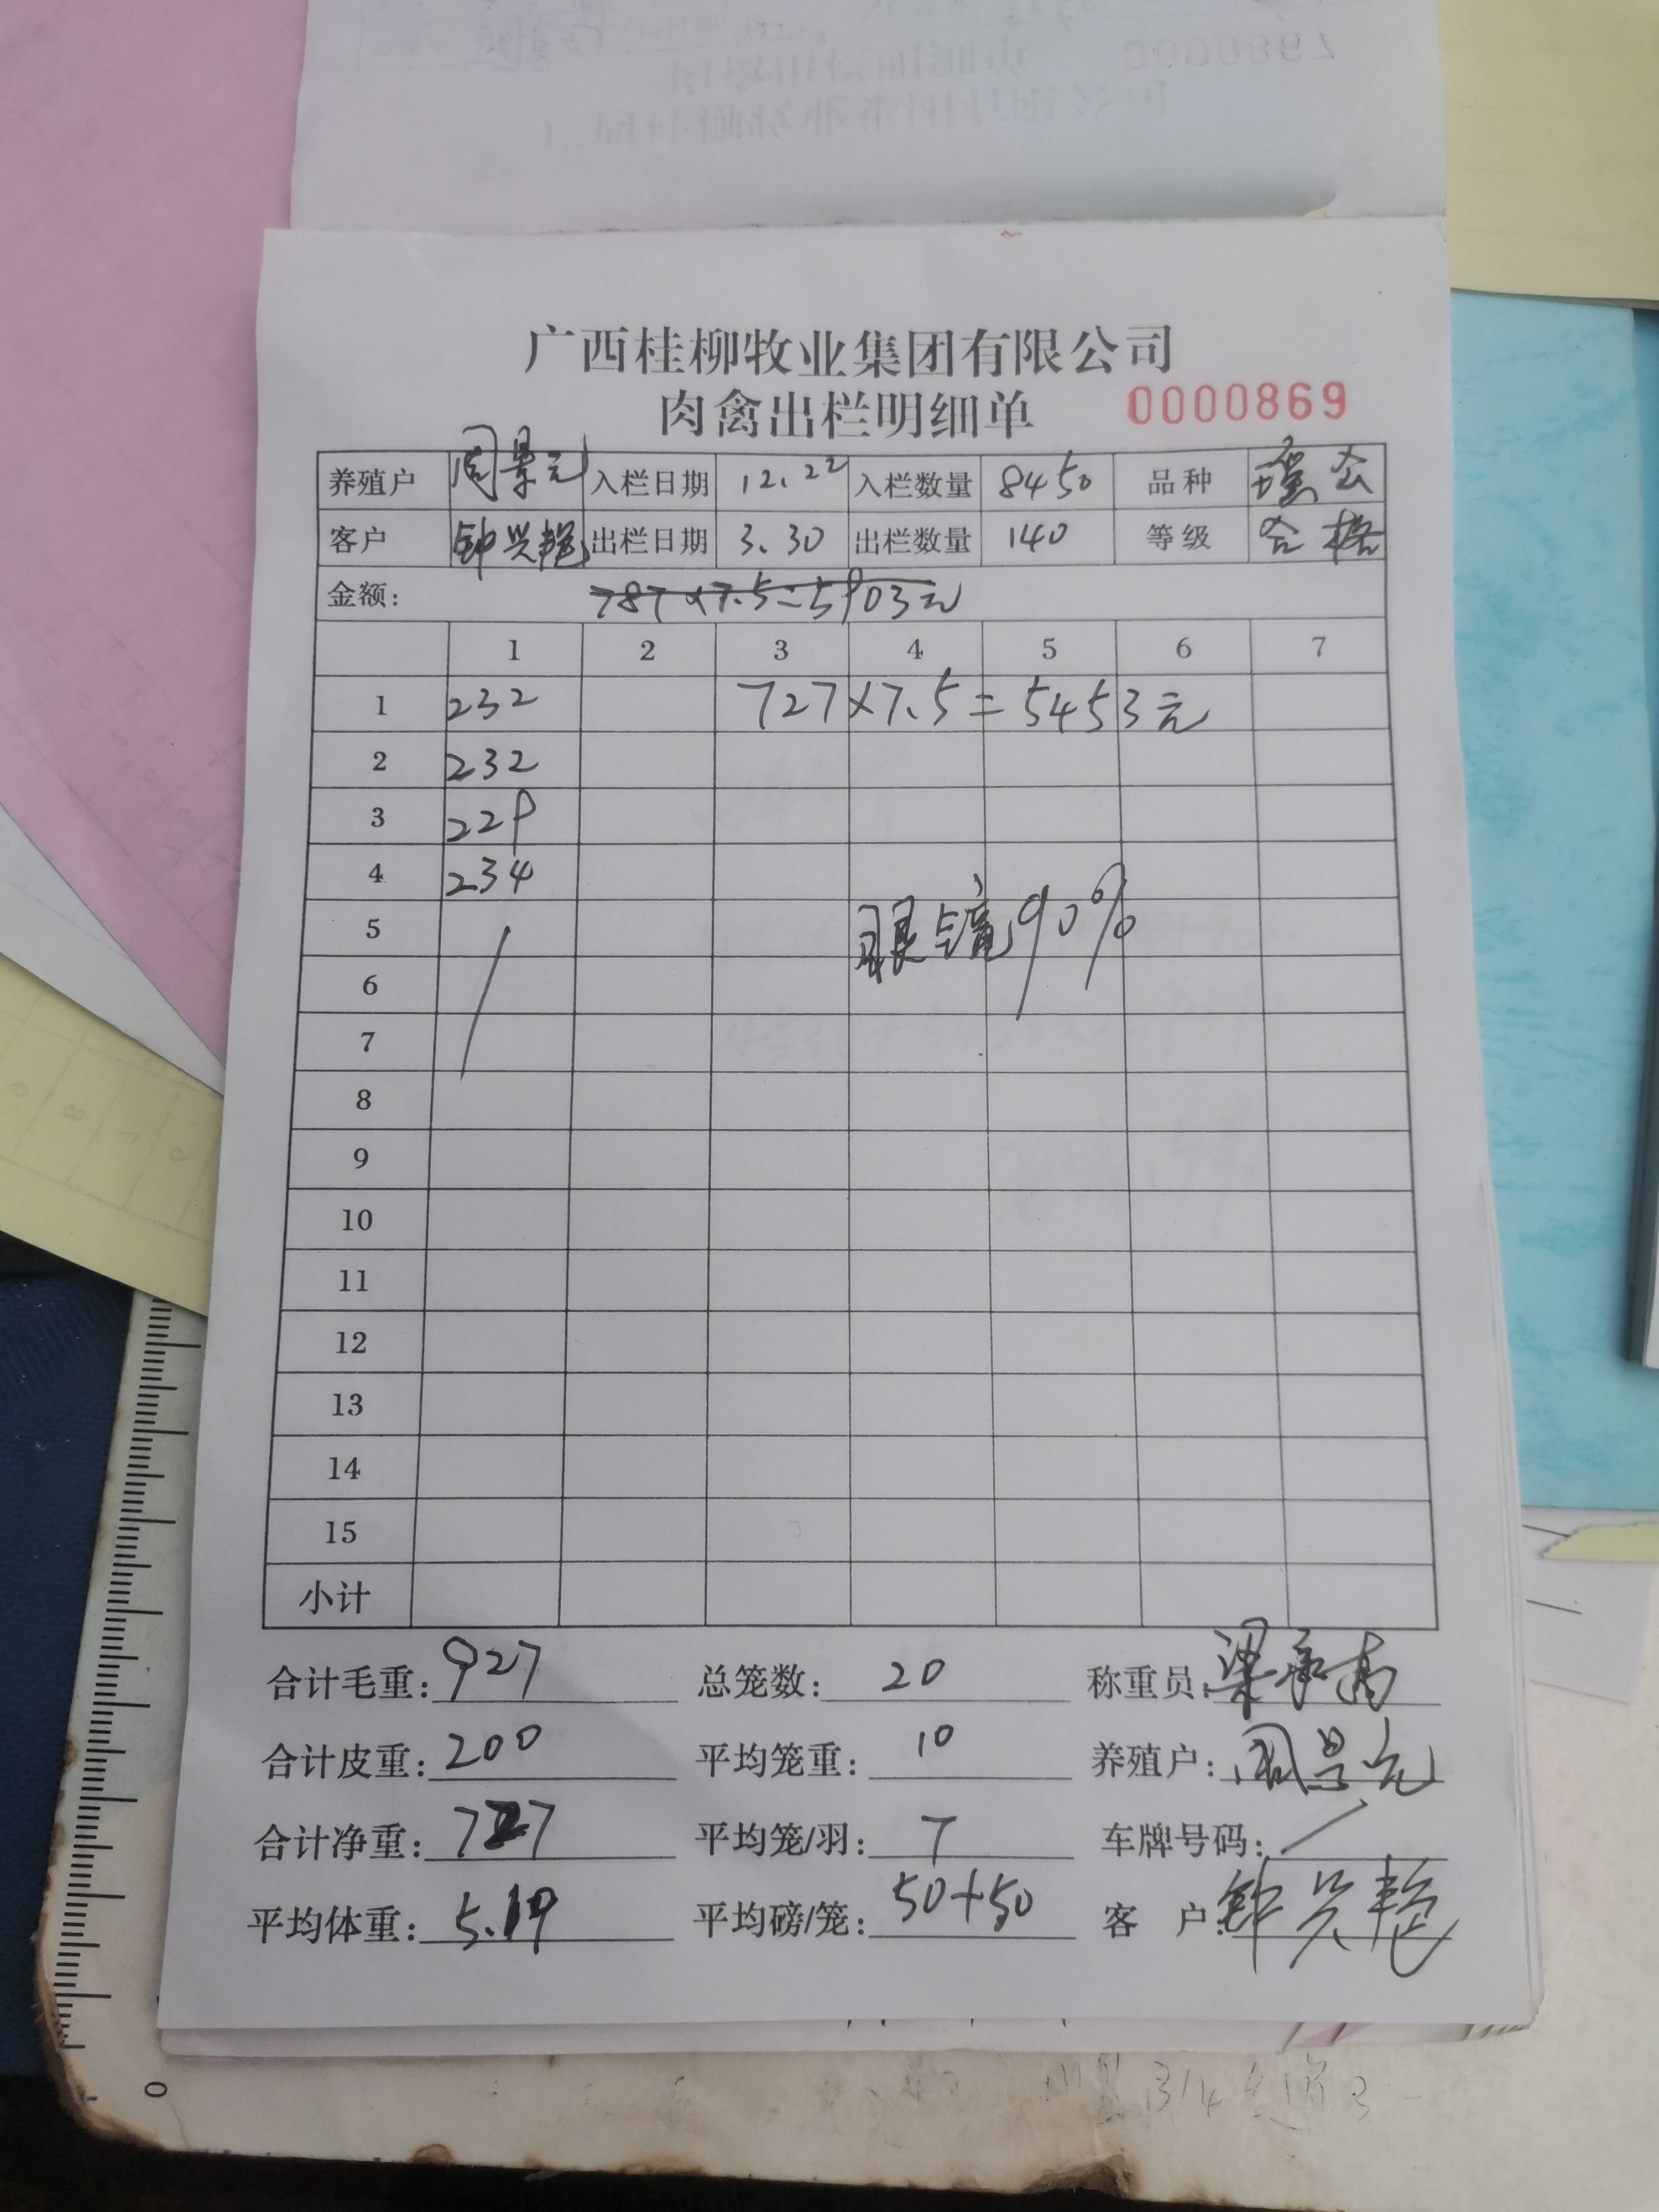 广西桂柳牧业集团有限公司
肉禽出栏明细单 0000869
养殖户 周景元 入栏日期 12.22 入栏数量 8450 品种
客户 钟兴艳 出栏日期 3.30 出栏数量 140 等级 合格
金额: 787×7.5=5903元
1 2 3 4 5 6 7
1 232 727×7.5=5453元
2 232
3 229
4 234
5 眼镜90%
6
7
8
9
10
11
12
13
14
15
小计
合计毛重: 927 总笼数: 20 称重员: 梁
合计皮重: 200 平均笼重: 10 养殖户: 周景元
合计净重: 727 平均笼/羽: 7 车牌号码: /
平均体重: 5.19 平均磅/笼: 50+50 客 户: 钟兴艳
0